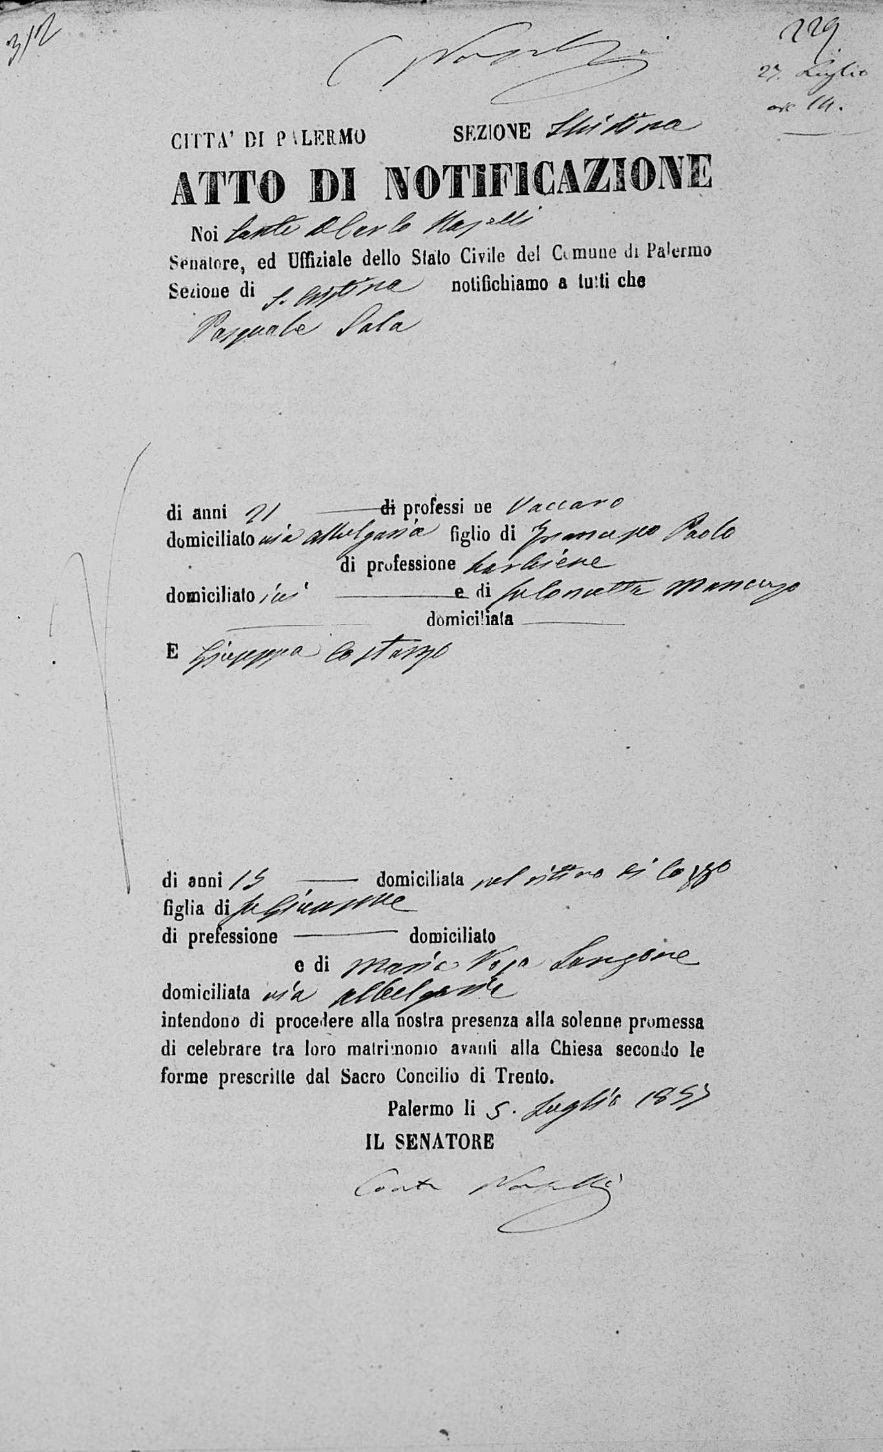 312
229
27. Luglio
ore 14.
CITTA' DI PALERMO SEZIONE S. Cristina
ATTO DI NOTIFICAZIONE
Noi Conte Alberto
Senatore, ed Uffiziale dello Stato Civile del Comune di Palermo
Sezione di S. Cristina notifichiamo a tutti che
Pasquale Sala
di anni 21 di professione Vaccaro
domiciliato via Albergaria figlio di Francesco Paolo
di professione barbiere
domiciliato ivi e di fu Concetta Mancuso
domiciliata
E Giuseppa Costanzo
di anni 15 domiciliata nel ritiro di
figlia di fu Giuseppe
di prefessione domiciliato
e di Maria
domiciliata via Albergaria
intendono di procedere alla nostra presenza alla solenne promessa
di celebrare tra loro matrimonio avanti alla Chiesa secondo le
forme prescritte dal Sacro Concilio di Trento.
Palermo li 5. Luglio 1857
IL SENATORE
Conte